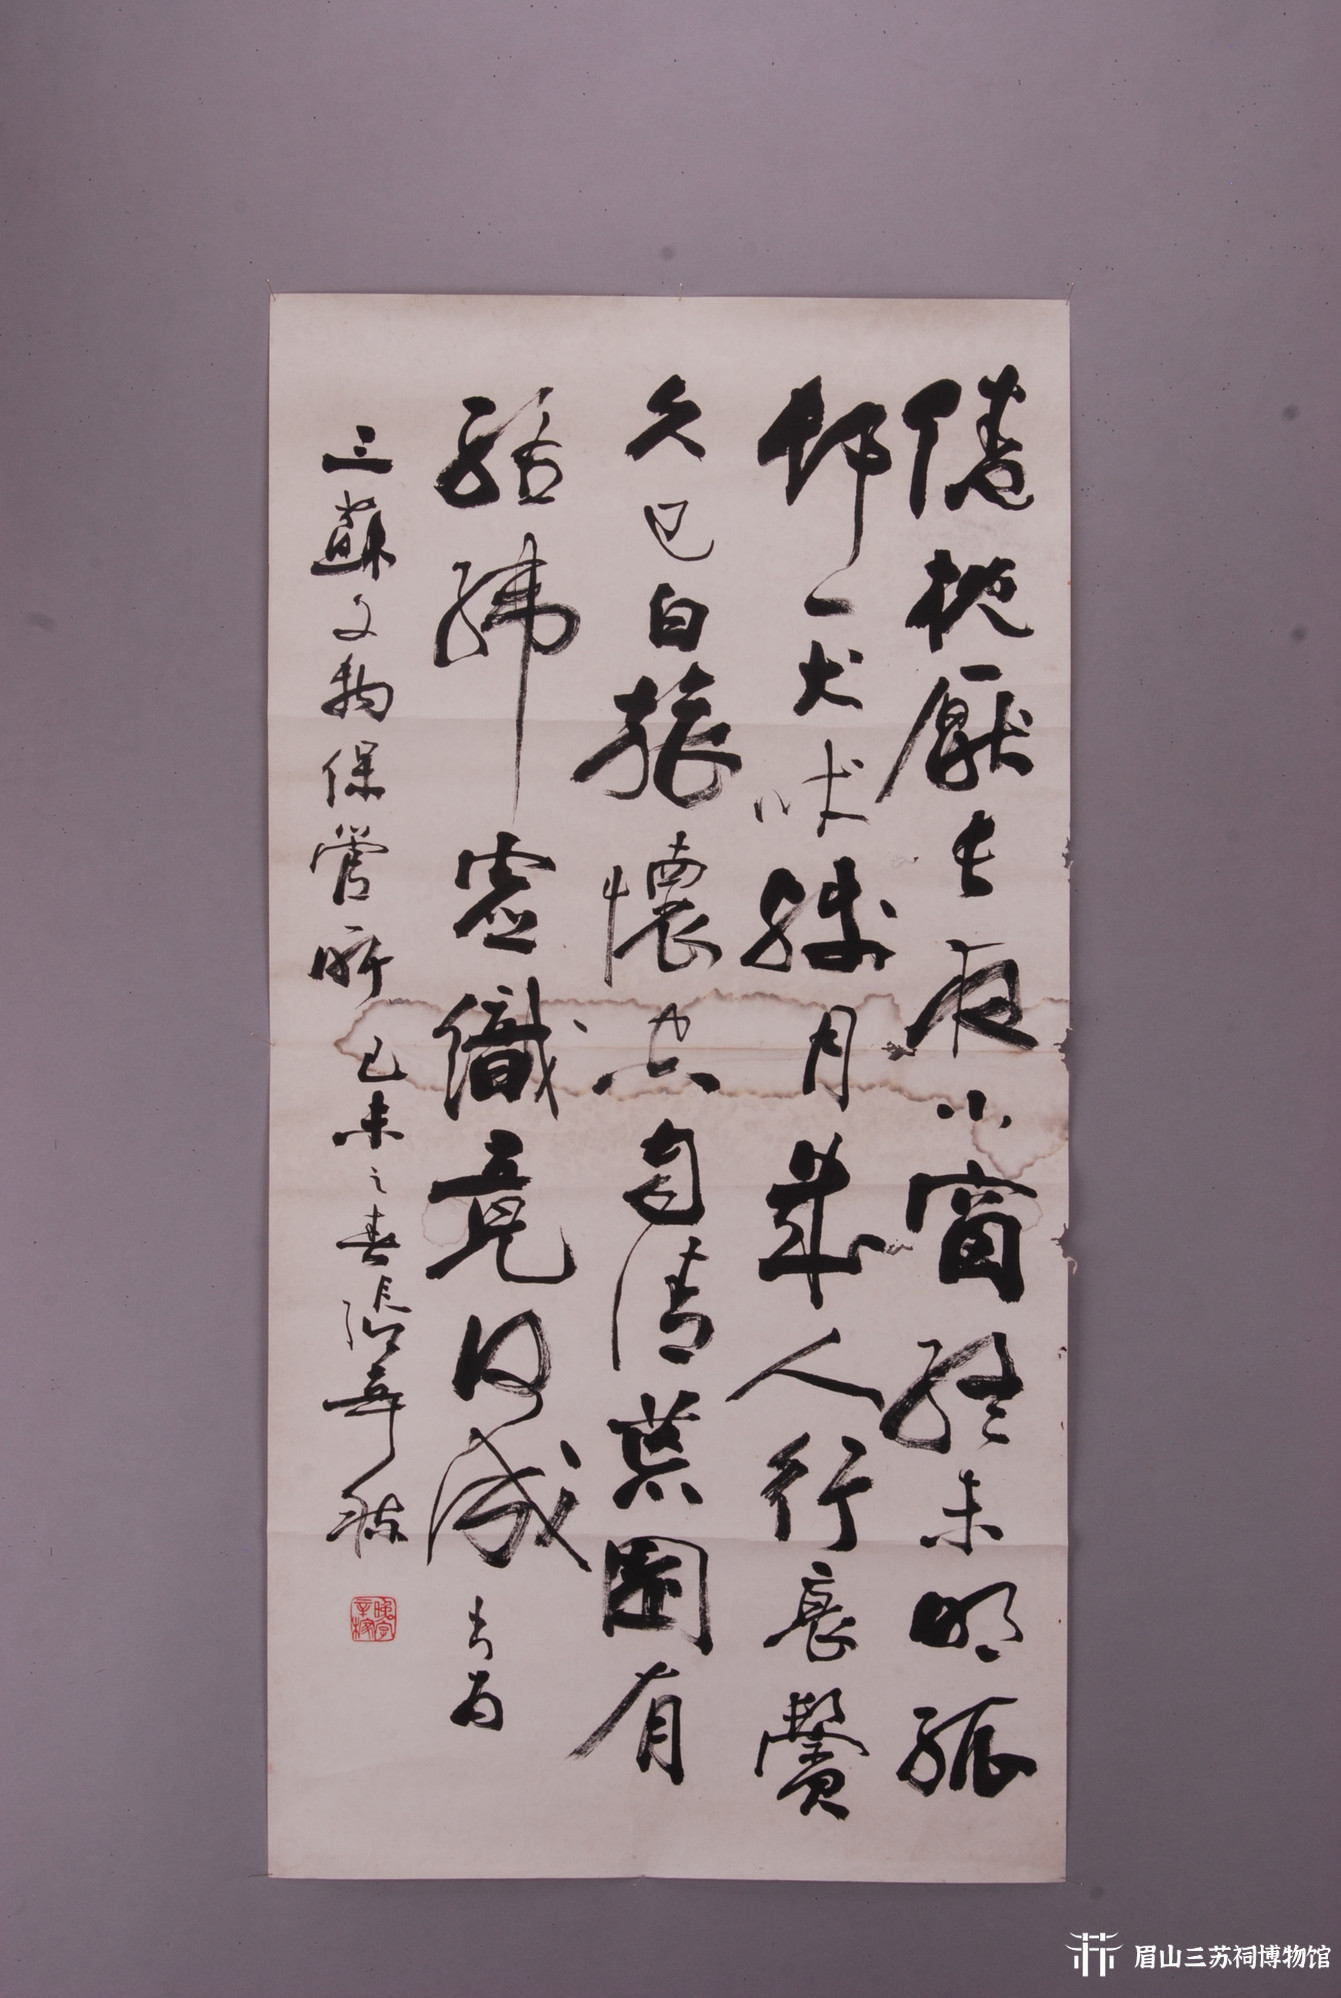 倦枕厭長夜小窗終未明孤
邨一犬吠殘月幾人行衰鬢
久已白旅懷空自清荒園有
絡緯虛織竟何成書為
三蘇文物保管所己未之春張辛稼
晚字辛稼
眉山三苏祠博物馆